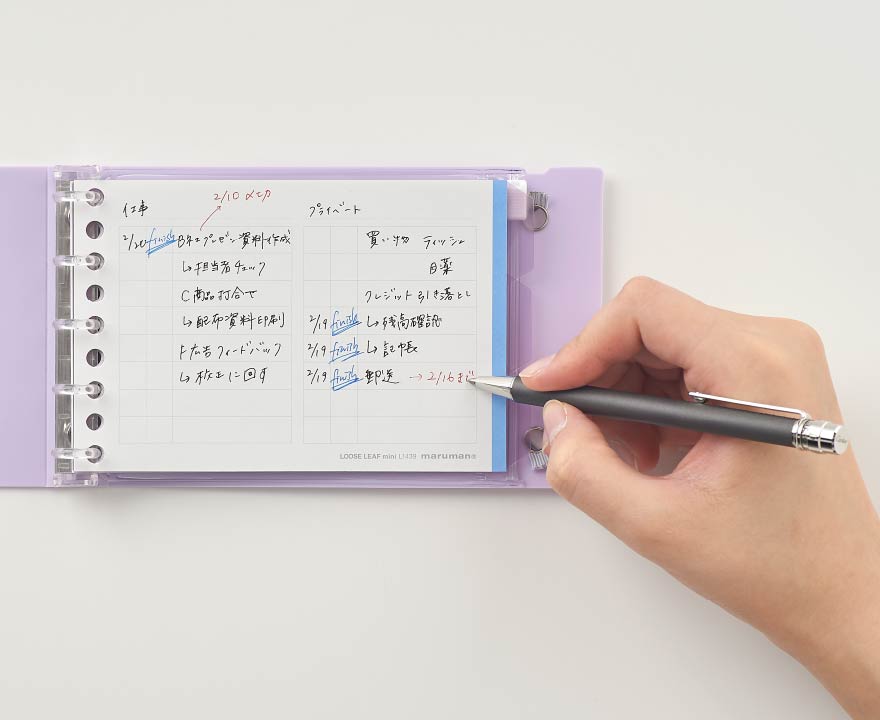 2/10 〆切
仕事
2/20 finish B社プレゼン資料作成
↳担当者チェック
C商品打合せ
↳配布資料印刷
F広告フィードバック
↳校正に回す
プライベート
買い物 ティッシュ
目薬
クレジット引き落とし
2/19 finish ↳残高確認
2/19 finish ↳記帳
2/19 finish 郵送 →2/16まで
LOOSE LEAF mini L1439 maruman®